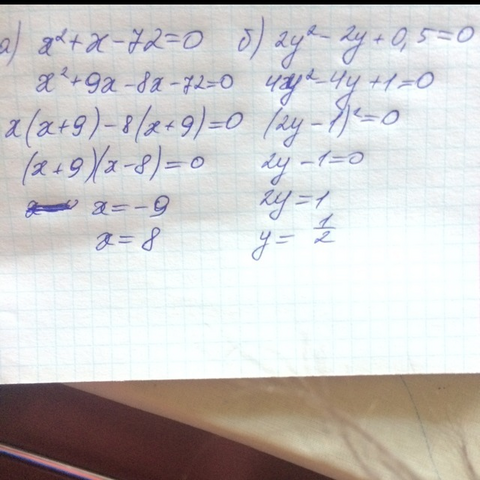 а) x² + x - 72 = 0
x² + 9x - 8x - 72 = 0
x(x+9) - 8(x+9) = 0
(x+9)(x-8) = 0
x = -9
x = 8
б) 2y² - 2y + 0,5 = 0
4y² - 4y + 1 = 0
(2y - 1)² = 0
2y - 1 = 0
2y = 1
y = 1/2